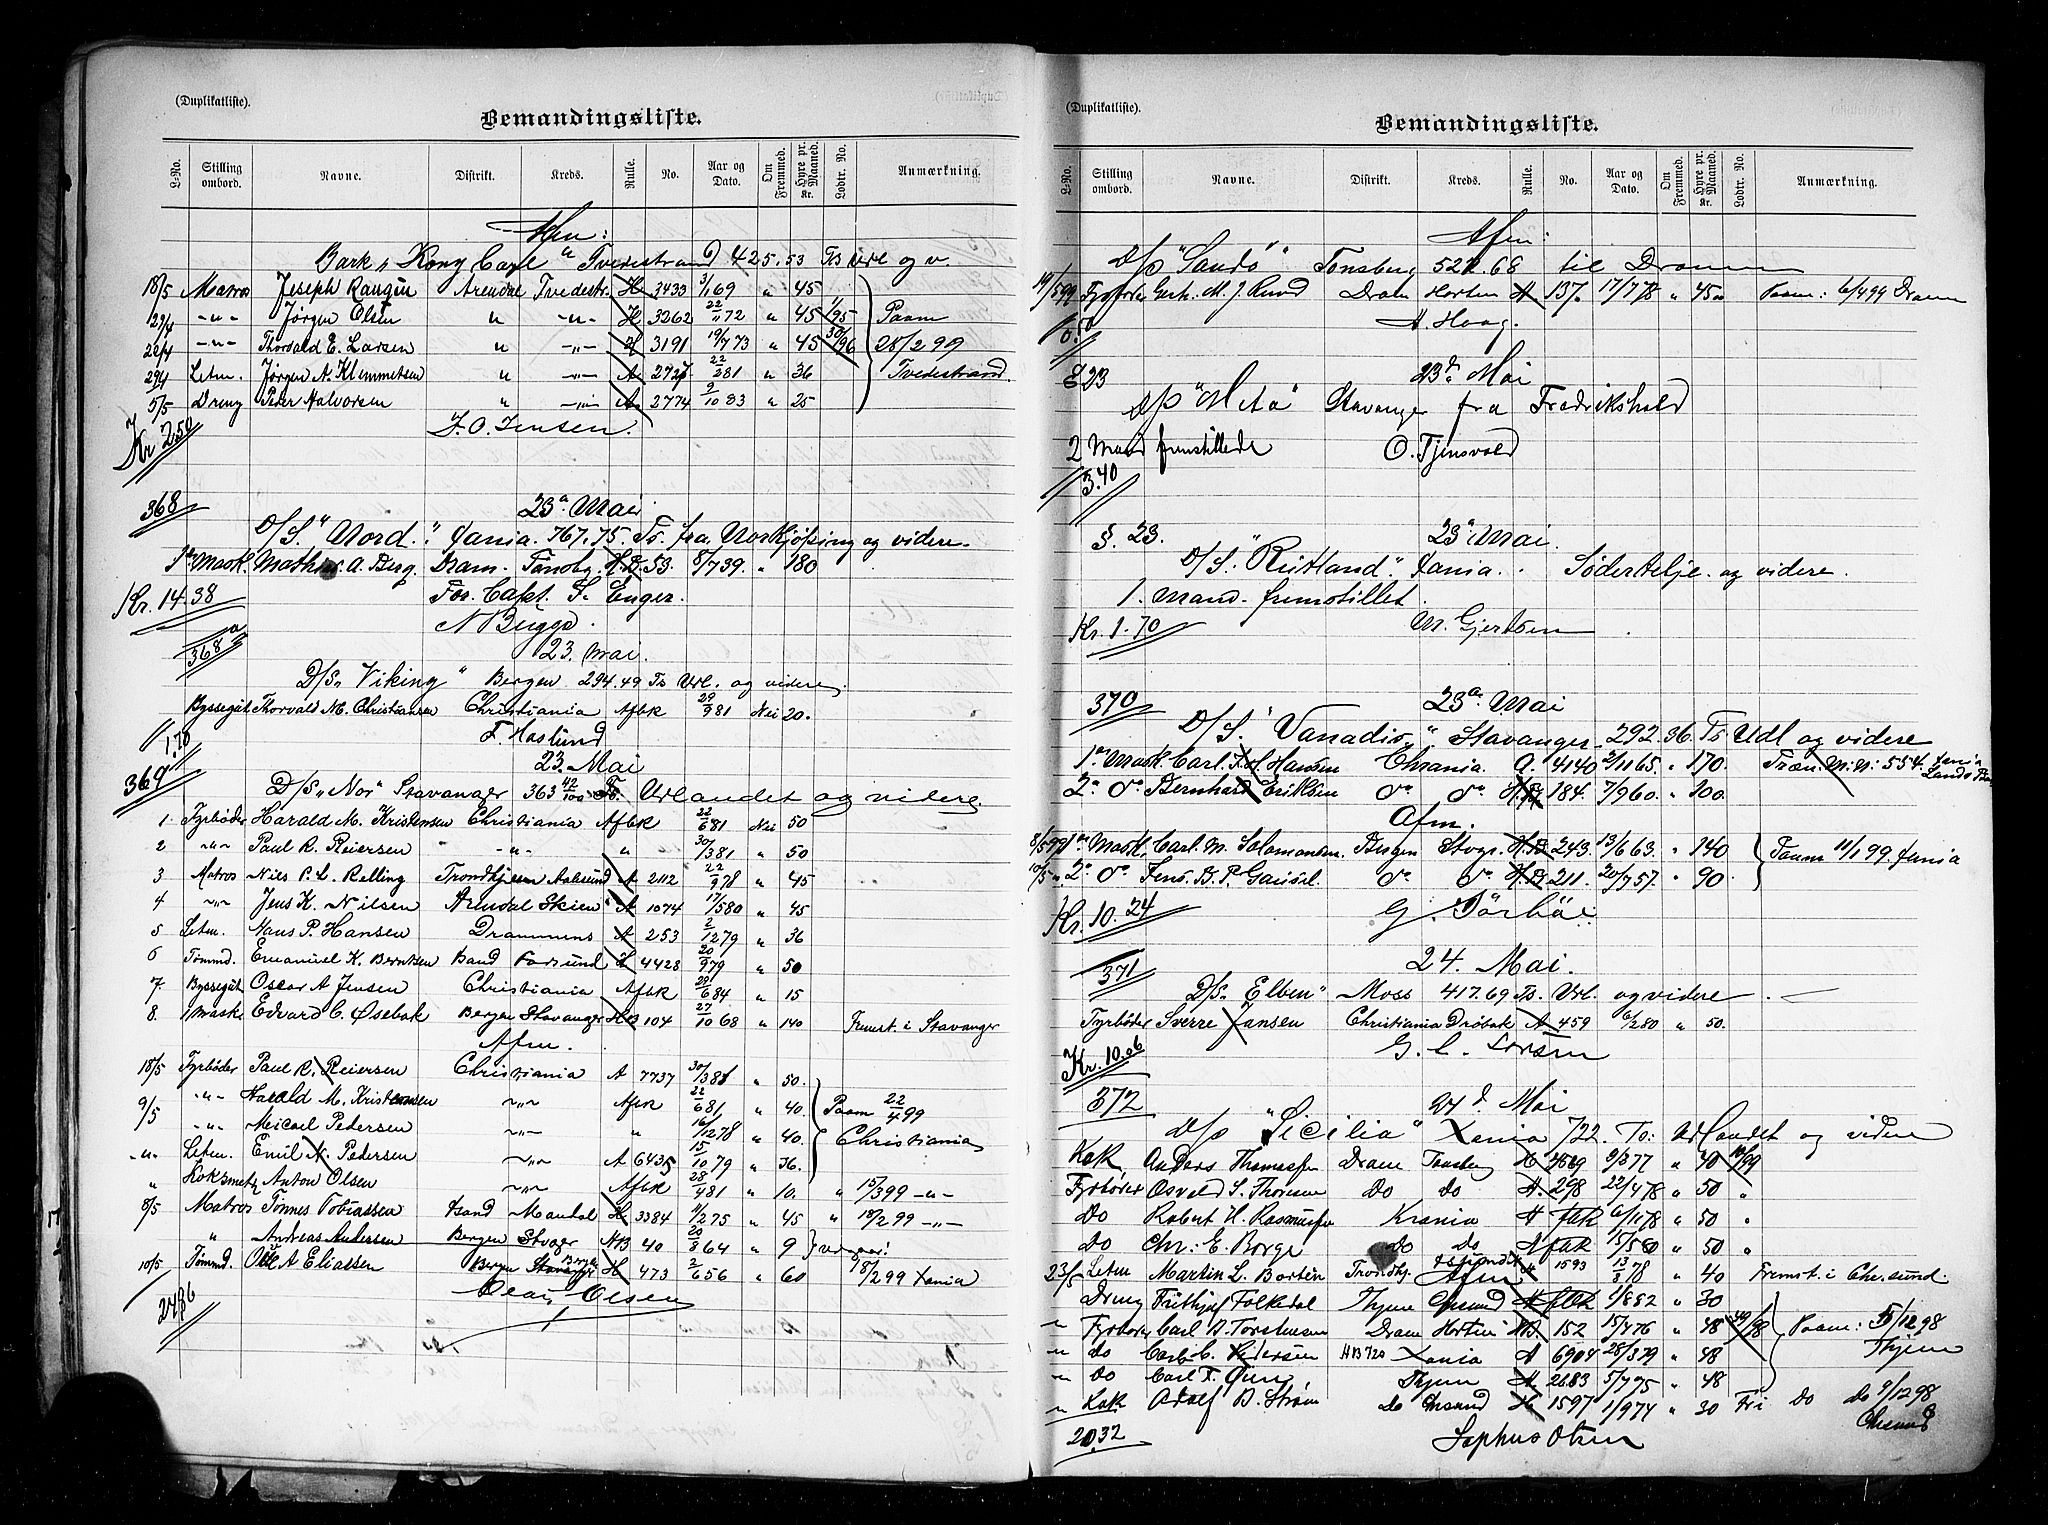 (Duplikatliste).
Bemandingsliste.
L-No. Stilling ombord. Navne. Distrikt. Kreds. Rulle. No. Aar og Dato. Om Fremmed. Hyre pr. Maaned. Kr. Lodtr. No. Anmærkning.
Afm:
Bark "Kong Carl" Tvedestrand 425.53 Ts Url og v.
18/5 Matros Joseph Arendal Tvedestr. H 3433 3/1 69 " 45
12/4 -"- Jørgen Olsen " -"- H 3262 22/11 72 " 45 1/95 Paam
22/4 -"- Thorvald E. Larsen " -"- H 3191 19/7 73 " 45 30/96 28/2 99
29/4 Letm. Jørgen A. Klemmetsen " -"- A 2727 22/2 81 " 36 Tvedestrand.
5/5 Dreng Peder Halvorsen " -"- A 2774 2/10 83 " 25
J. O. Jensen.
Kr 2.50
368 23de Mai
D/S. "Nord". Xania. 767.75. Ts. fra Norkjøping og videre.
1ste Mask. Mathias A. Berg. Dram. Tønsbg. H.B. 53. 8/7 39. " 180
Kr. 14.38 For Capt. S. Enger.
N Bugge.
368 a 23. Mai.
D/S "Viking" Bergen 294.49 Ts Url. og videre
Byssegut Thorvald M. Christiansen Christiania Afbk 29/9 81 Nei 20.
1.70 F. Haslund
369 23. Mai
D/S "Nor" Stavanger 363 42/100 Ts. Urlandet og videre
1. Fyrbøder Harald M. Kristensen Christiania Afbk 22/6 81 Nei 50
2 -"- Paul R. Reiersen -"- " 30/3 81 " 50
3 Matros Nils P. L. Relling Trondhjem Aalesund A 2112 22/9 78 " 45
4 -"- Jens K. Nilsen Arendal Skien A 1074 17/5 80 " 45
5 Letm. Hans P. Hansen Drammens A 253 2/12 79 " 36
6 Tømmd. Emanuel K. Berntsen Xsand Farsund H 4428 20/9 79 " 50
7 Byssegut Oscar A Jensen Christiania Afbk 20/6 84 " 15
8. 1 Maske Edvard C. Øsebak Bergen Stavanger HB 104 27/10 68 " 140 Fremst. i Stavanger
Afm.
18/5 Fyrbøder Paul R. Reiersen Christiania A 7737 30/3 81 " 50.
9/5 -"- Harald M. Kristensen -"- Afbk 22/6 81 " 40. Paam 22/4 99
-"- Micael Pedersen -"- " 16/12 78 " 40. Christiania
-"- Letm. Emil N. Pedersen -"- A 6435 15/10 79 " 36.
" Koksmath Anton Olsen -"- Afbk 28/4 81 " 10. " 15/3 99 -"-
8/5 Matros Tønnes Tobiassen Xsand Mandal H 3384 11/2 75 " 45 " 18/2 99 -"-
" Andreas Andersen Bergen Stvger HB 40 20/8 64 " 9 udgaar!
10/5 Tømmd. Olle A Eliassen Bergen Stavanger Bergen H 473 2/6 56 " 60 18/2 99 Xania
Olaus Olsen
24.36
(Duplikatliste).
Bemandingsliste.
L-No. Stilling ombord. Navne. Distrikt. Kreds. Rulle. No. Aar og Dato. Om Fremmed. Hyre pr. Maaned. Kr. Lodtr. No. Anmærkning.
Afm:
D/S "Sandø" Tønsberg 522.68 til Drammen
19/5 99 Fyrbøder Gerh. M. J. Rund Dram Horten A 137. 17/7 78 " 45.00 Paam: 6/4 99 Dram
0.50 A. Haag.
E 23 23de Mai
D/S "Meta" Stavanger fra Fredrikshald
2 Mand fremstillede O. Tjensvold
3.40
S. 23. 23de Mai.
D/S. "Rutland". Xania. Södertelje. og videre.
1. Mand. fremstillet.
Kr. 1.70 M. Gjertsen
370 23de Mai
D/S. "Vanadis". Stavanger 292.36. Ts Udl og videre
1ste Mask. Carl. Hansen Chrania. A. 4140 2/11 65. " 170. Fræn. M.N. 554. Xania
2de do Bernhard Eriksen do do H.B. 184. 7/9 60. " 100.
Afm.
8/5 99 1ste Mask. Carl. M. Salomonsen. Bergen Stvgr. H.B. 243. 13/6 63. " 140 Paam 11/1 99 Xania
10/5 " 2de do Jens. B. P. Gausel. do do H.B. 211. 20/7 57. " 90.
Kr. 10.24 G. Törböe.
371 24. Mai.
D/S "Elben" Moss 417.69 Ts. Url. og videre
Fyrbøder Sverre Jansen Christiania Drøbak A 459 6/2 80 " 50.
Kr. 10.06 G. C. Larsen
372 24de Mai
D/S "Sicilia" Xania 722. To: Udlandet og videre
Kok Anders Thomassen Dram Tønsberg H 4569 9/3 77 " 40 14/99
Fyrbøder Osvald S. Thoresen Do Do H. 298 22/4 78 " 50 "
Do Robert H. Rasmussen Krania A fbk 6/11 78 " 50 "
Do Chr: E. Borge Do Do A fbk 15/5 80 " 50 "
23/5 Letm Martin L. Borten Trondhj. A 1593 13/3 78 " 40 Fremst. i Chr.sund.
Afm
Dreng Frithjof Folkedal Thjem Chrsund A fbk 1/8 82 " 30
" Fyrbøder Carl B. Torstensen Dram Horten HB 152 15/4 76 " 48 Paam: 5/12 98
" Do Carl C. Pedersen HB 720 Xania A 6904 28/3 79 " 48 Thjem
" Do Carl F. Thjem A 2683 5/7 75 " 48
" Kok Adolf B. Strøm Do Chrsund H 1597 1/9 74 " 30 Fri Do Do 9/12 98
20.32 Sophus Olsen Chrsund